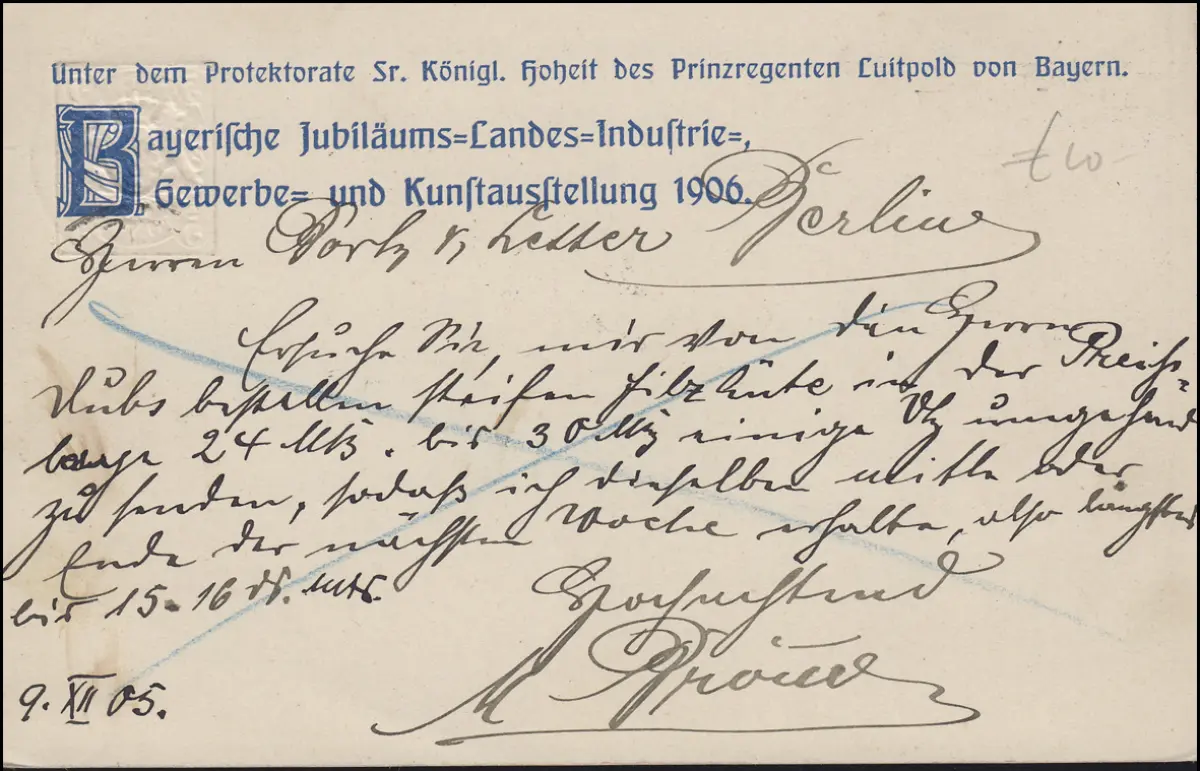 Unter dem Protektorate Sr. Königl. Hoheit des Prinzregenten Luitpold von Bayern.
Bayerische Jubiläums=Landes=Industrie=,
Gewerbe= und Kunstausstellung 1906.
Herren Portz & Berlin
Ersuche Sie, mir von den Herren
bestellten steifen Filzhüte in der Preis-
lage 24 Mk. bis 30 Mk einige Dtz umgehend
zu senden, sodaß ich dieselben mitte oder
Ende der nächsten Woche erhalte, also längstens
bis 15-16 ds. Mts.
Hochachtend
M
9. XII 05.
£ 10-